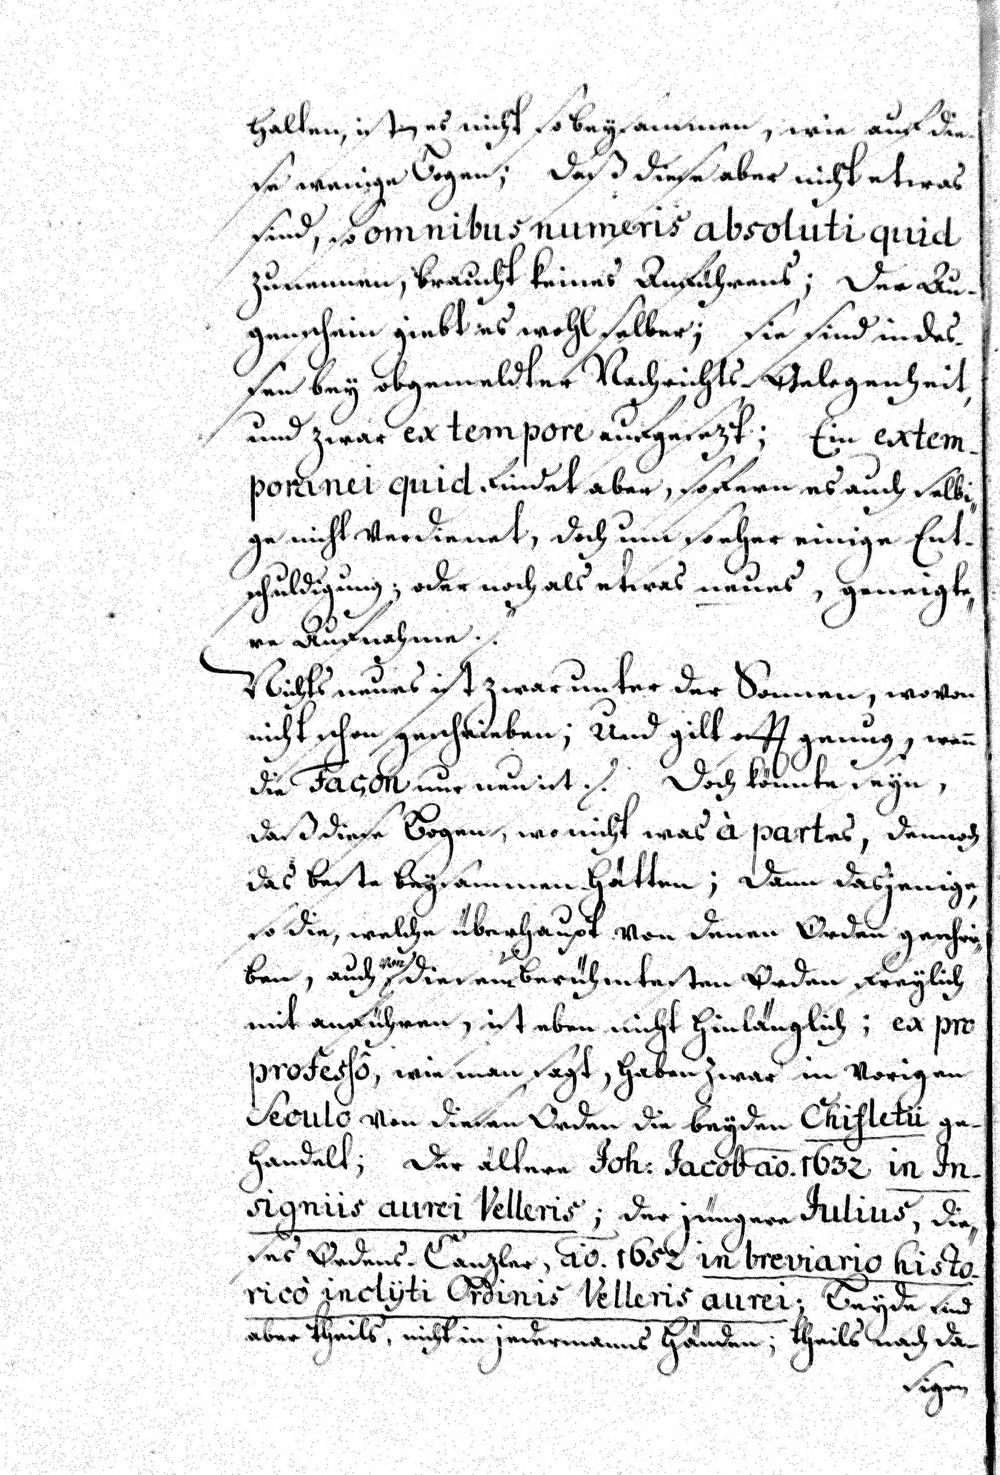 halten, ist es nicht so beysammen, wie auf die-
se wenige Bogen; daß diese aber nicht etwas
sind, so omnibus numeris absoluti quid
zunennen, braucht keines Anführens; Der Au-
genschein giebt es wohl selber; sie sind indes-
sen bey obgemeldter Nachrichts-Gelegenheit,
und zwar ex tempore aufgesezt; Ein extem-
poranei quid findet aber, sofern es auch selbi-
ge nicht verdienet, doch um so eher einige Ent-
schuldigung; oder noch als etwas neues, geneigte-
re Aufnahme.
Nichts neues ist zwar unter der Sonnen, wovon
nicht schon geschrieben; Und gilt offt genug, wenn
die Façon nur neu ist. Doch könnte seyn,
daß diese Bogen, wo nicht was à partes, dennoch
das beste beysammen hätten; Dann dasjenige,
so die, welche überhaupt von denen Orden geschrie-
ben, auch von diesem berühmtesten Orden freylich
mit anführen, ist eben nicht hinlänglich; ex pro
professô, wie man sagt, haben zwar in vorigen
Seculo von diesen Orden die beyden Chifletii ge-
handelt; Der ältere Joh: Jacob aõ. 1632 in In-
signiis aurei Velleris; der jüngere Julius, die-
ses Ordens-Canzler, aõ. 1652 in breviario histo-
ricô inclÿti Ordinis Velleris aurei; Beyde sind
aber theils, nicht in jedermanns Händen; theils nach da-
sigen